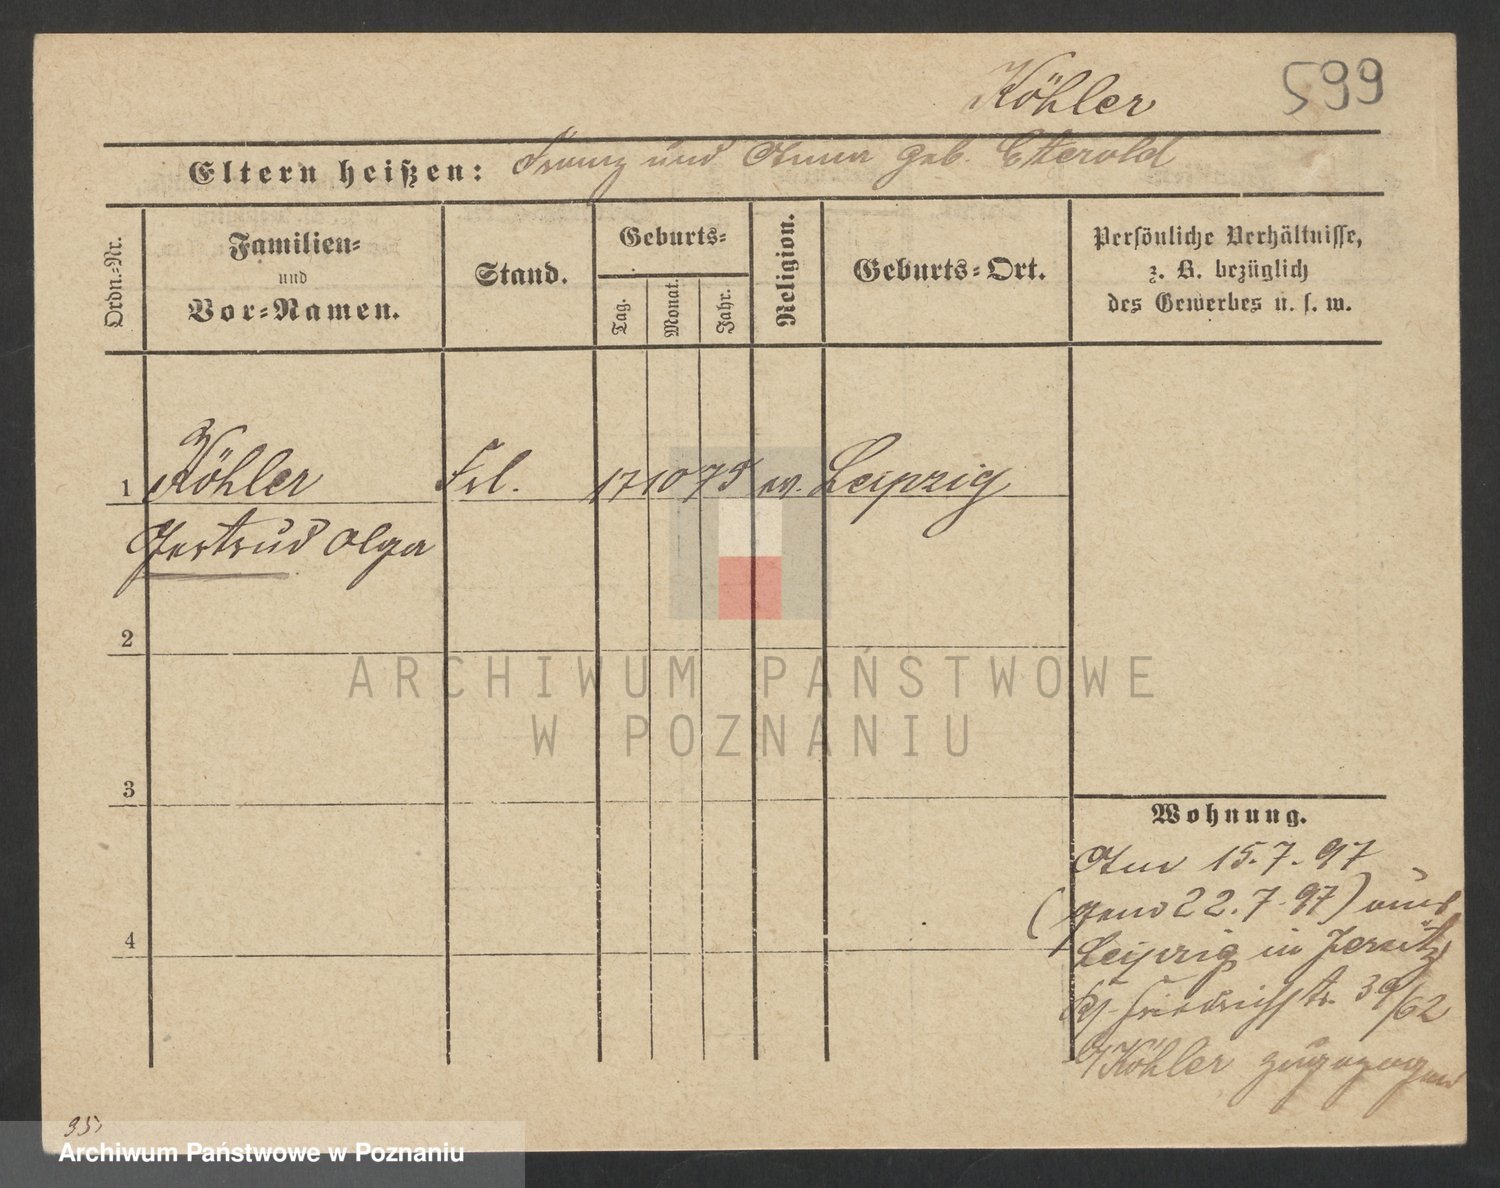 Köhler
599
Eltern heißen: Franz und Anna geb. Etterold
Ordn.-Nr.
Familien-
und
Vor-Namen.
Stand.
Geburts-
Tag.
Monat.
Jahr.
Religion.
Geburts-Ort.
Persönliche Verhältnisse,
z. B. bezüglich
des Gewerbes u. s. w.
1 Köhler Frl. 17 10 75 ev. Leipzig
Gertrud Olga
2
ARCHIWUM PAŃSTWOWE
W POZNANIU
3
Wohnung.
Am 15.7.97
(gem 22.7.97) aus
4
Leipzig in Jersitz
Friedrichstr. 39/62
Köhler zugezogen
35
Archiwum Państwowe w Poznaniu